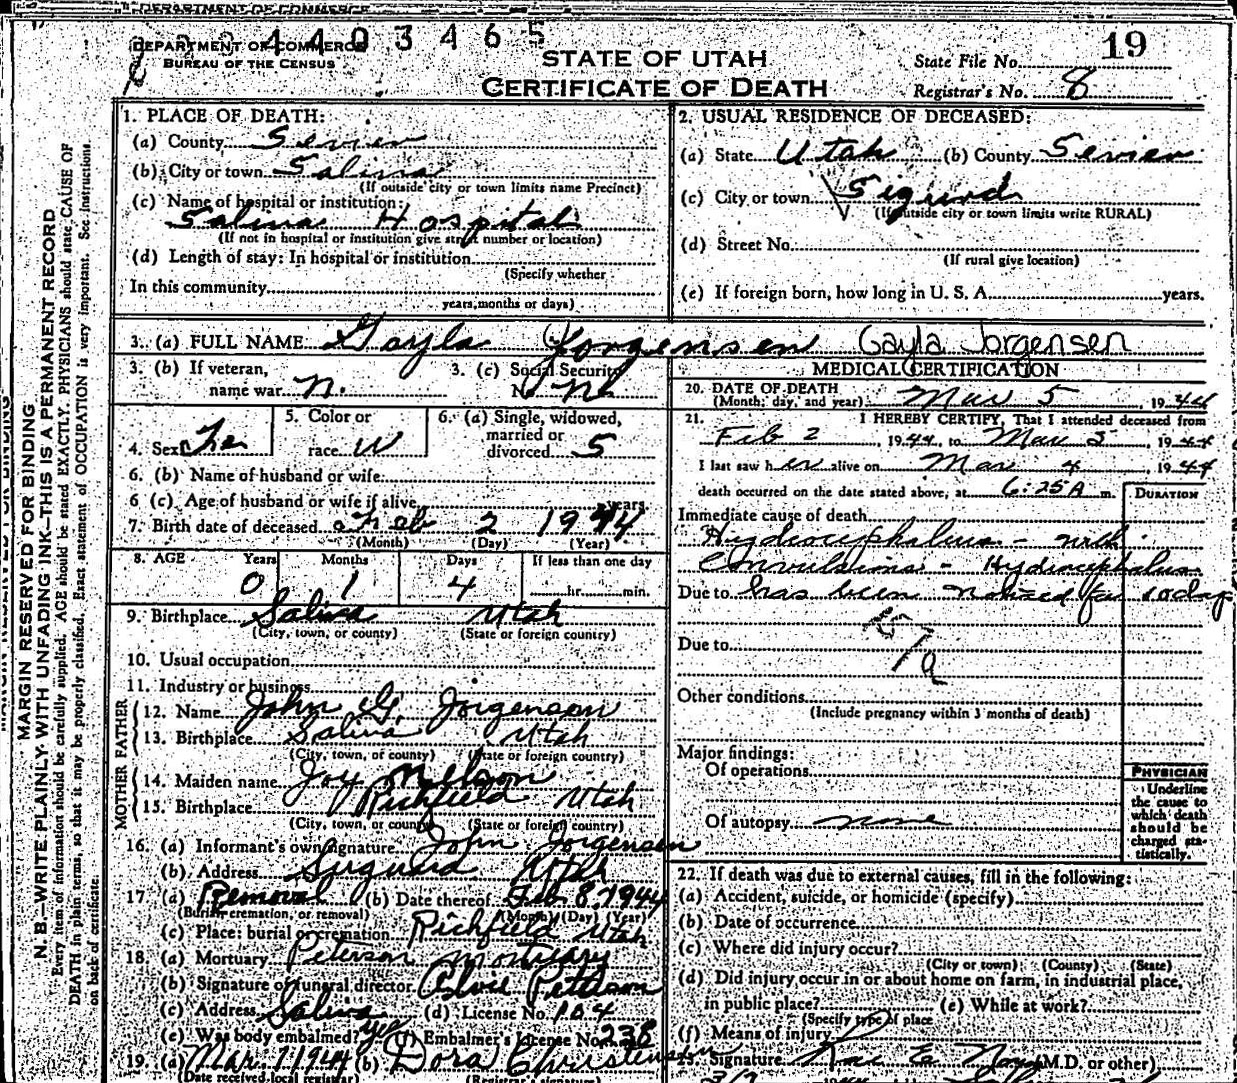 DEPARTMENT OF COMMERCE
4 4 0 3 4 6 5
19
DEPARTMENT OF COMMERCE
BUREAU OF THE CENSUS
STATE OF UTAH
CERTIFICATE OF DEATH
State File No.
Registrar's No. 8
MARGIN RESERVED FOR BINDING
N. B.—WRITE PLAINLY WITH UNFADING INK—THIS IS A PERMANENT RECORD
Every item of information should be carefully supplied. AGE should be stated EXACTLY. PHYSICIANS should state CAUSE OF
DEATH in plain terms, so that it may be properly classified. Exact statement of OCCUPATION is very important. See instructions
on back of certificate.
1. PLACE OF DEATH:
(a) County Sevier
(b) City or town Salina
(If outside city or town limits name Precinct)
(c) Name of hospital or institution:
Salina Hospital
(If not in hospital or institution give street number or location)
(d) Length of stay: In hospital or institution
(Specify whether
In this community
years, months or days)
2. USUAL RESIDENCE OF DECEASED:
(a) State Utah (b) County Sevier
(c) City or town Sigurd
(If outside city or town limits write RURAL)
(d) Street No.
(If rural give location)
(e) If foreign born, how long in U. S. A. years.
3. (a) FULL NAME Gayla Jorgensen Gayla Jorgensen
3. (b) If veteran,
name war n.
3. (c) Social Security
No. no
4. Sex Fe
5. Color or
race W
6. (a) Single, widowed,
married or
divorced S
6. (b) Name of husband or wife
6 (c). Age of husband or wife if alive years
7. Birth date of deceased Feb 2 1944
(Month) (Day) (Year)
8. AGE Years Months Days If less than one day
0 1 4 hr. min.
9. Birthplace Salina Utah
(City, town, or county) (State or foreign country)
10. Usual occupation
11. Industry or business
FATHER
12. Name John G. Jorgenson
13. Birthplace Salina Utah
(City, town, or county) (State or foreign country)
MOTHER
14. Maiden name Joy Nelson
15. Birthplace Richfield Utah
(City, town, or county) (State or foreign country)
16. (a) Informant's own signature John Jorgensen
(b) Address Siguard Utah
17 (a) Removal (b) Date thereof Feb 8, 1944
(Burial, cremation, or removal) (Month) (Day) (Year)
(c) Place: burial or cremation Richfield Utah
18. (a) Mortuary Peterson Mortuary
(b) Signature of funeral director Elvie Peterson
(c) Address Salina (d) License No. 104
(e) Was body embalmed? yes (f) Embalmer's License No. 238
19. (a) Mar. 7 1944 (b) Dora Christensen
(Date received local registrar) (Registrar's signature)
MEDICAL CERTIFICATION
20. DATE OF DEATH
(Month, day, and year) Mar 5, 1944
21. I HEREBY CERTIFY, That I attended deceased from
Feb 2, 1944, to Mar 5, 1944
I last saw her alive on Mar 4, 1944
death occurred on the date stated above, at 6:25 A m.
DURATION
Immediate cause of death
Hydrocephalus - with
Convulsions - Hydrocephalus
Due to has been noticed for 10 days
157a
Due to
Other conditions
(Include pregnancy within 3 months of death)
Major findings:
Of operations
Of autopsy none
PHYSICIAN
Underline
the cause to
which death
should be
charged sta-
tistically.
22. If death was due to external causes, fill in the following:
(a) Accident, suicide, or homicide (specify)
(b) Date of occurrence
(c) Where did injury occur?
(City or town) (County) (State)
(d) Did injury occur in or about home on farm, in industrial place,
in public place? (e) While at work?
(Specify type of place
(f) Means of injury
Signature Rae E. Noyes (M.D. or other)